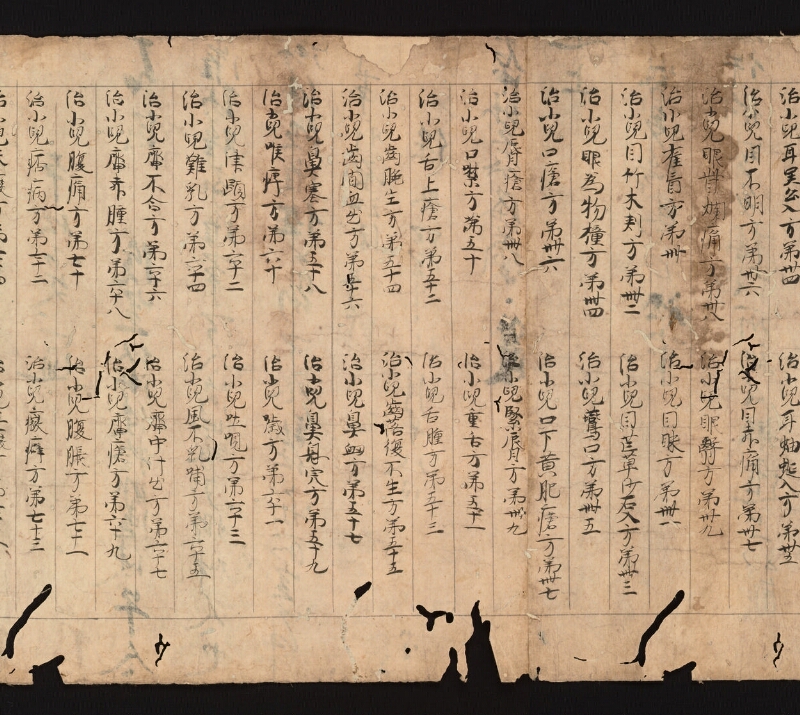 治小兒耳百虫入方第卅四　治小兒耳蚰蜒入方第卅五
治小兒目不明方第卅六　治小兒目赤痛方第卅七
治小兒眼眥爛痛方第卅八　治小兒眼翳方第卅九
治小兒雀盲方第卌　治小兒目眯方第卌一
治小兒目竹木刾方第卌二　治小兒目芒草沙石入方第卌三
治小兒眼為物撞方第卌四　治小兒鷰口方第卌五
治小兒口瘡方第卌六　治小兒口下黃肥瘡方第卌七
治小兒脣瘡方第卌八　治小兒緊脣方第卌九
治小兒口噤方第五十　治小兒重舌方第五十一
治小兒舌上瘡方第五十二　治小兒舌腫方第五十三
治小兒齒晚生方第五十四　治小兒齒落復不生方第五十五
治小兒齒間血出方第五十六　治小兒鼻衄方第五十七
治小兒鼻塞方第五十八　治小兒鼻息宍方第五十九
治小兒喉痹方第六十　治小兒噦方第六十一
治小兒津頤方第六十二　治小兒吐哯方第六十三
治小兒難乳方第六十四　治小兒風不乳哺方第六十五
治小兒齎不合方第六十六　治小兒齎中汁出方第六十七
治小兒齎赤腫方第六十八　治小兒齎瘡方第六十九
治小兒腹痛方第七十　治小兒腹脹方第七十一
治小兒痞病方第七十二　治小兒癥癖方第七十三